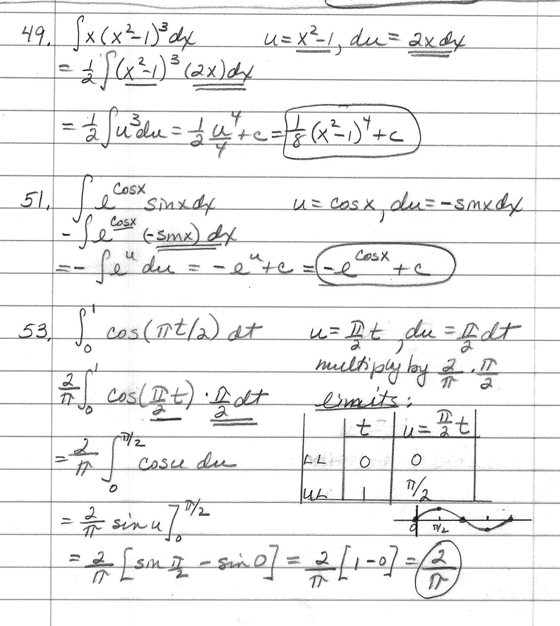 49. ∫x(x²-1)³dx   u=x²-1, du=2xdx
=½∫(x²-1)³(2x)dx
=½∫u³du=½u⁴/4+c=⅛(x²-1)⁴+c
51. ∫e^cosx sinxdx   u=cosx, du=-sinxdx
-∫e^cosx(-sinx)dx
=-∫e^u du=-e^u+c=-e^cosx+c
53. ∫₀¹cos(πt/2)dt   u=π/2 t, du=π/2 dt
multiply by 2/π·π/2
2/π∫₀¹cos(π/2 t)·π/2 dt   limits:
t   u=π/2 t
LL   0   0
=2/π∫₀^π/2 cosu du
UL   1   π/2
=2/π sinu]₀^π/2   0   π/2
=2/π[sin π/2-sin0]=2/π[1-0]=2/π